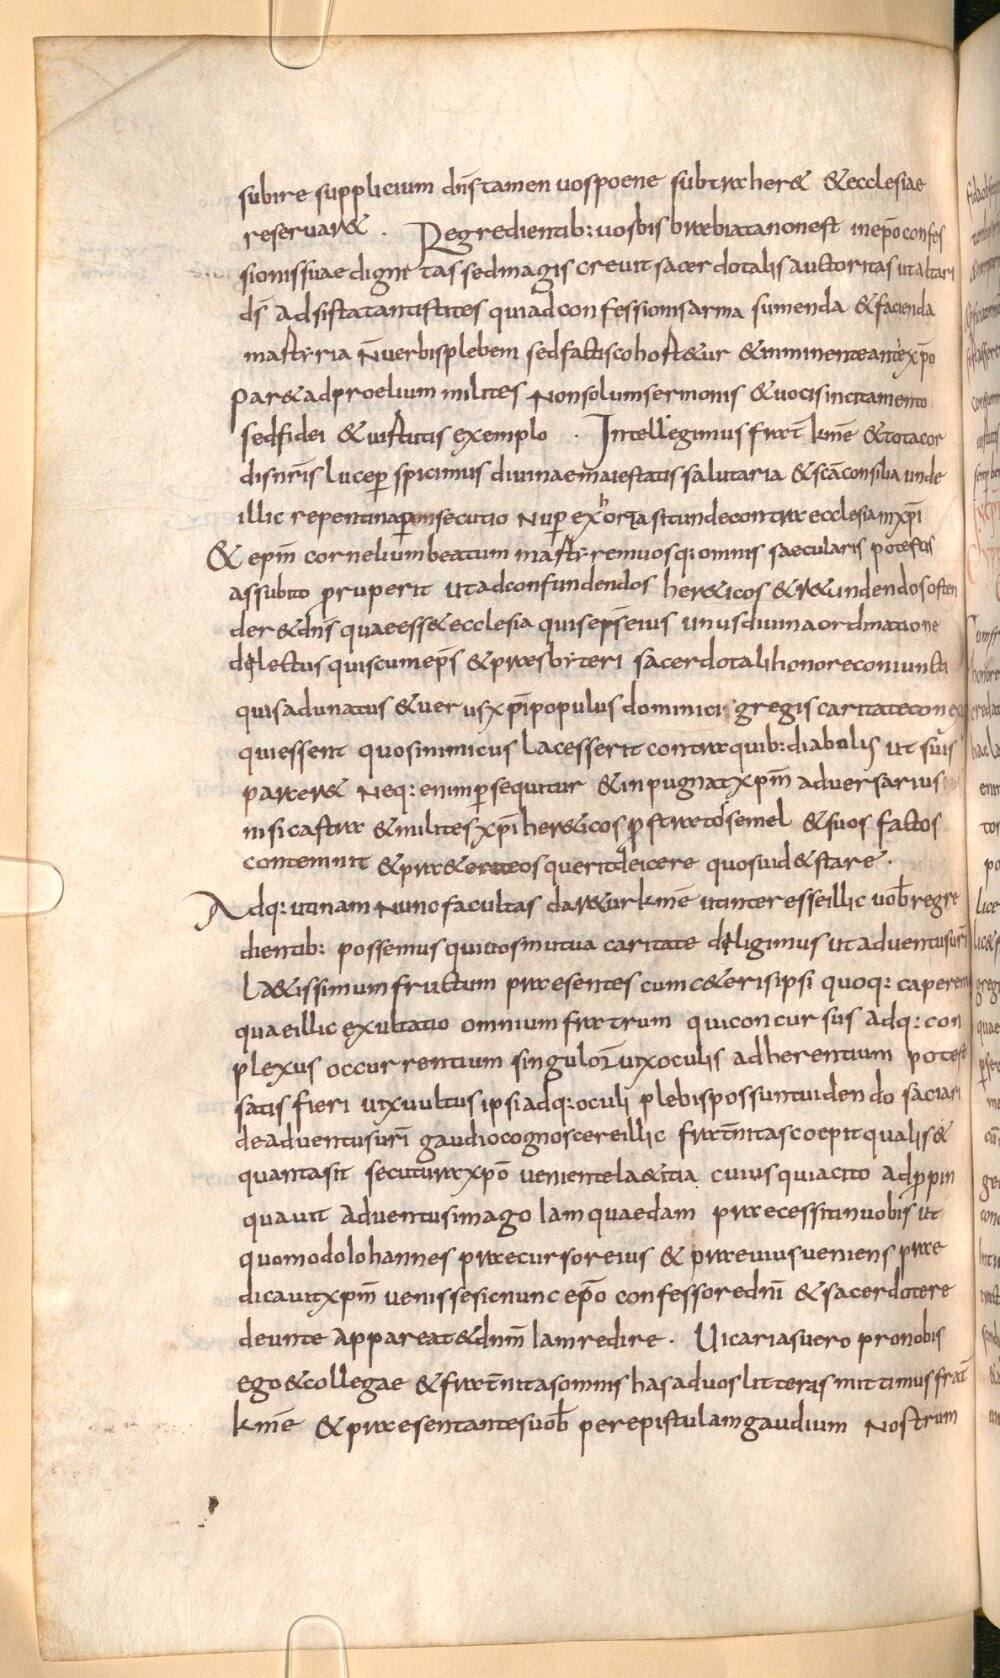 subire supplicium dn̄s tamen uos poene subtraher& & ecclesiae
reseruar& . Regredientib: uobis brebiata non est in ep̄o confes
sionis suae dignitas sed magis creuit sacerdotalis auctoritas ut altari
dī adsistat antistites qui ad confessionis arma sumenda & facienda
martyria n̄ uerbis plebem sed factis cohort&ur & inminente antexpō
par& ad proelium milites Non solum sermonis & uocis incitamento
sed fidei & uirtutis exemplo . Intellegimus frat̄ km̄e & tota cor
dis nr̄is luce perspicimus diuinae maiestatis salutaria & sc̄a consilia unde
illic repentina persecutio Nuper exorta sit unde contra ecclesiam xp̄i
& ep̄m cornelium beatum martyrem uosq: omnis saecularis potestas
assubito pruperit ut ad confundendos her&icos & r&undendos osten
der& dn̄s quae ess& ecclesia quis ep̄s eius unus diuina ordinatione
delectus qui cum ep̄s & praesbyteri sacerdotali honore coniuncti
quis adunatus & uerus xp̄i populus dominici gregis caritate conex
qui essent quos inimicus lacesserit contra quib: diabulis ut suis
parcer& Neq: enim persequitur & inpugnat xp̄m aduersarius
nisi castra & milites xp̄i her&icos prostratos semel & suos factos
contemnit & praeterit eos querit deicere quos uid& stare .
Adq: utinam Nunc facultas dar&ur km̄e ut interesse illic uob̄ regre
dientib: possemus qui uos mutua caritate deligimus ut aduentus uri
la&issimum fructum praesentes cum c&eris ipsi quoq: caperem
quae illic exultatio omnium fratrum qui concursus adq: con
plexus occurrentium singulor̄ uix oculis adherentium potest
satis fieri uix uultus ipsi adq: oculi plebis possunt uidendo saciari
de aduentus uri gaudio cognoscere illic frat̄nitas coepit qualis &
quanta sit secutura xpō ueniente la&itia cuius quia cito adpropin
quauit aduentus imago Iam quaedam praecessit in uobis ut
quomodo Iohannes praecursor eius & praeuius ueniens prae
dicauit xp̄m uenisse sic nunc ep̄o confessore dn̄i & sacerdote re
deunte appareat & dn̄m Iam redire . Uicarias uero pro nobis
ego & collegae & frat̄nitas omnis has ad uos litteras mittimus frat̄
km̄e & praesentantes uob̄ per epistulam gaudium Nostrum